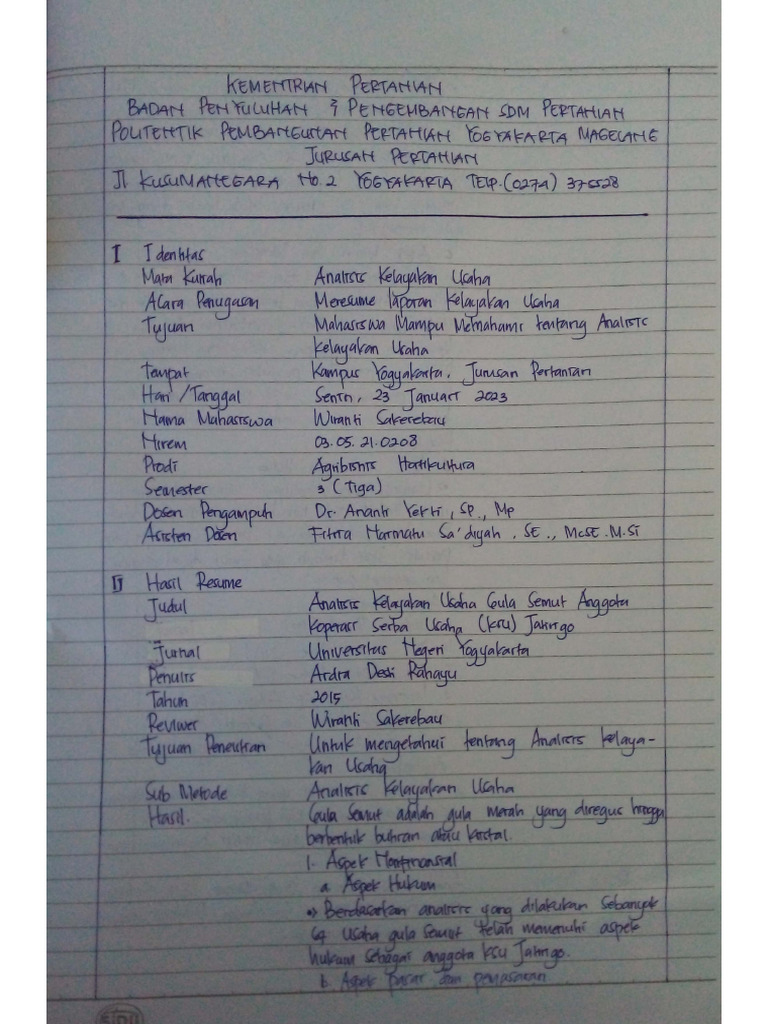 KEMENTRIAN PERTANIAN
BADAN PENYULUHAN & PENGEMBANGAN SDM PERTANIAN
POLITENTIK PEMBANGUNAN PERTANIAN YOGYAKARTA MAGELANG
JURUSAN PERTANIAN
Jl KUSUMANEGARA No.2 YOGYAKARTA TELP.(0274) 375528
I Identitas
Mata Kuliah Analisis Kelayakan Usaha
Acara Penugasan Meresume laporan Kelayakan Usaha
Tujuan Mahasiswa Mampu Memahami tentang Analisis
Kelayakan Usaha
Tempat Kampus Yogyakarta, Jurusan Pertanian
Hari /Tanggal Senin, 23 Januari 2023
Nama Mahasiswa Wiranti Sakerebau
Nirem 03.05.21.0208
Prodi Agribisnis Hortikultura
Semester 3 (Tiga)
Dosen Pengampuh Dr. Ananti Yekti, SP., Mp
Asisten Dosen Fitria Narmatu Sa'diyah, SE., McSE.M.Si
II Hasil Resume
Judul Analisis Kelayakan Usaha Gula Semut Anggota
Koperasi Serba Usaha (KSU) Jatirogo
Jurnal Universitas Negeri Yogyakarta
Penulis Ardra Desti Rahayu
Tahun 2015
Reviwer Wiranti Sakerebau
Tujuan Penelitian Untuk mengetahui tentang Analisis kelaya-
kan Usaha
Sub Metode Analisis Kelayakan Usaha
Hasil. Gula Semut adalah gula merah yang diregus hingga
berbentik butiran atau kristal.
1. Aspek Nonfinansial
a. Aspek Hukum
•) Berdasarkan analisis yang dilakukan sebanyak
64 usaha gula semut telah memenuhi aspek
hukum sebagai anggota KSU Jatirogo.
b. Aspek pasar dan pemasaran
SIDU